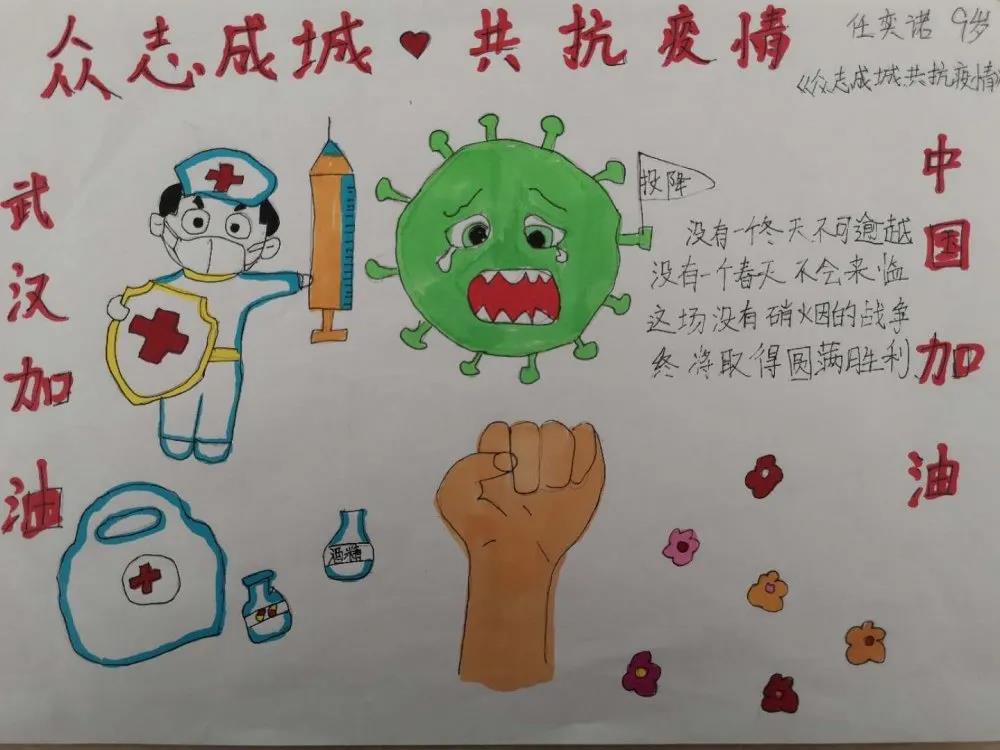 众志成城 共抗疫情
任奕诺 9岁
《众志成城.共抗疫情》
武汉加油
投降
没有一个冬天不可逾越
没有一个春天不会来临
这场没有硝烟的战争
终将取得圆满胜利
中国加油
酒精